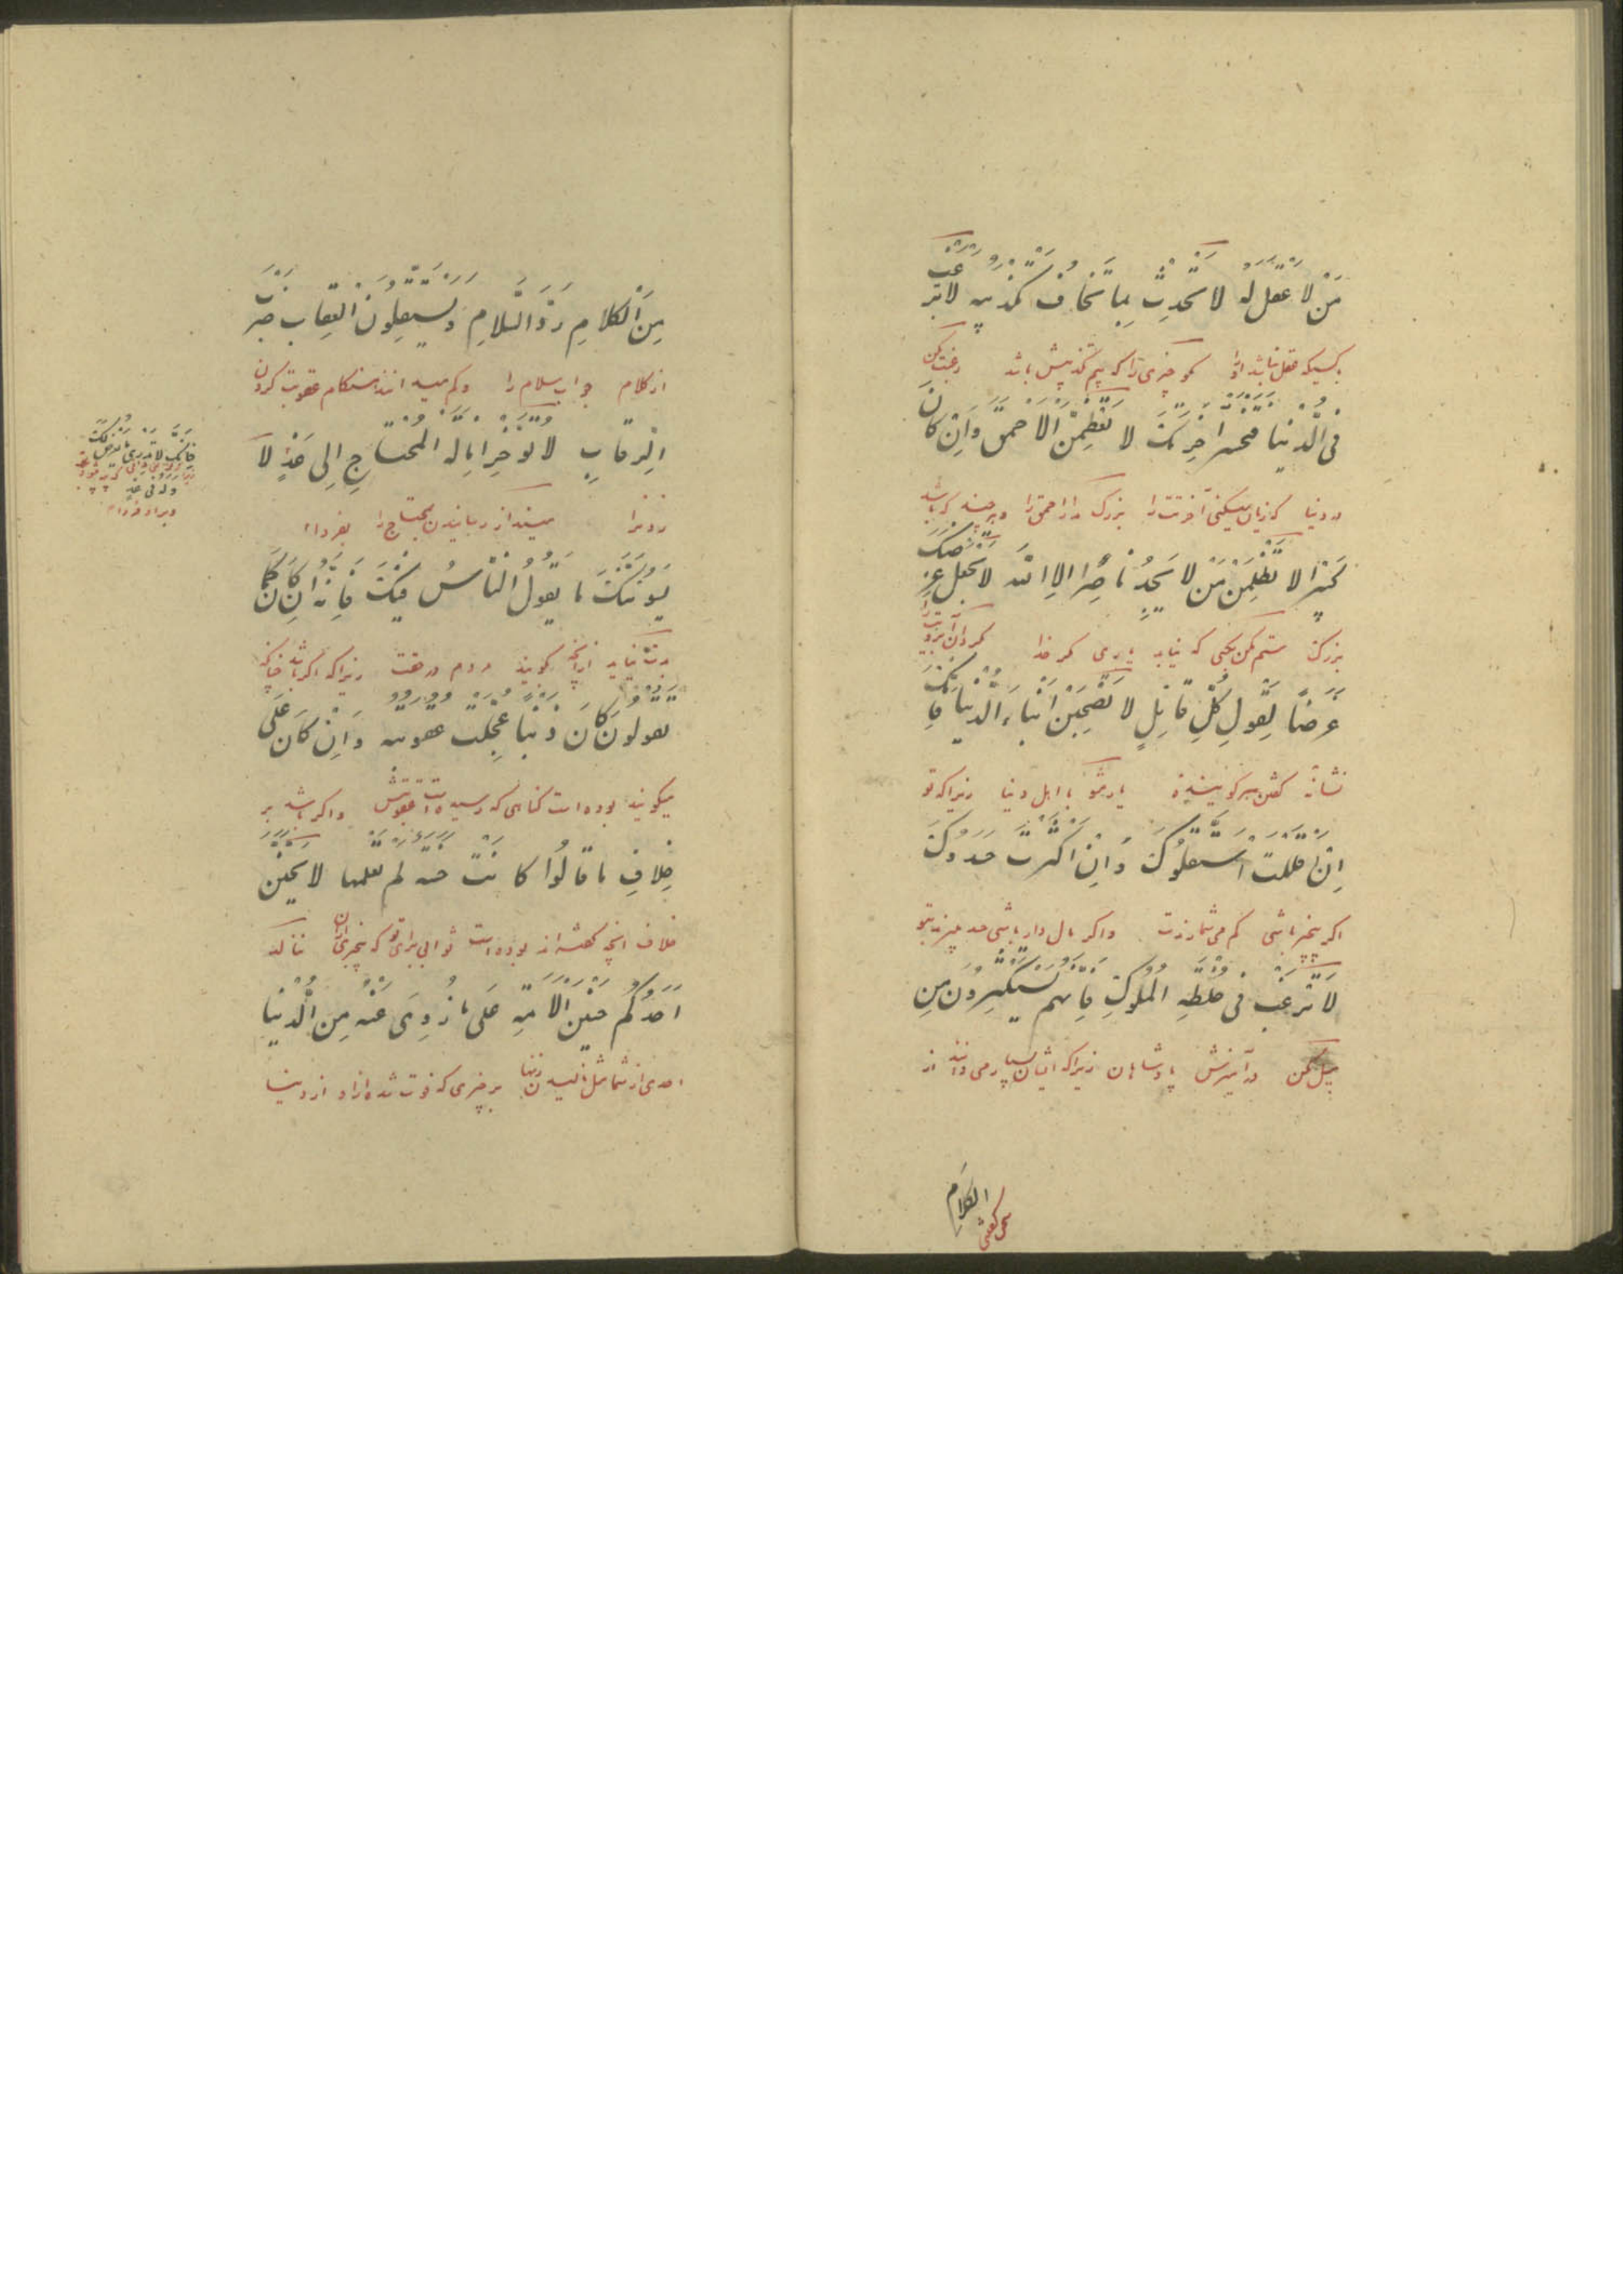 مَنْ لَا عَقْلَ لَهُ لَا تُحَدِّثْ بِمَا تَخَافُ تَكْذِيبَهُ لَا تَرْغَبْ
بکسیکه عقل نباشد او را مگو چیزی را که بیم تکذیبش باشد رغبت مکن
فِی الدُّنْیَا فَتَخْسَرَ آخِرَتَكَ لَا تُعَظِّمَنَّ الْأَحْمَقَ وَإِنْ كَانَ
در دنیا که زیان میکنی آخرتت را بزرگ مدار احمق را و هر چند که باشد
كَبِيرًا لَا تَظْلِمَنَّ مَنْ لَا يَجِدُ نَاصِرًا إِلَّا اللَّهَ لَا تَجْعَلْ عِرْضَكَ
بزرگ ستم مکن بکسی که نیابد یاری مگر خدا مگردان آبرویت را
غَرَضًا لِقَوْلِ كُلِّ قَائِلٍ لَا تَصْحَبَنَّ أَبْنَاءَ الدُّنْيَا فَإِنَّكَ
نشانهٔ گفتن هر گوینده یار مشو با اهل دنیا زیرا که تو
إِنْ أَقْلَلْتَ اسْتَقَلُّوكَ وَإِنْ أَكْثَرْتَ حَسَدُوكَ
اگر بیچیز باشی کم می‌شمارندت و اگر مال دار باشی حسد میبرند بتو
لَا تَرْغَبْ فِي خُلْطَةِ الْمُلُوكِ فَإِنَّهُمْ يَسْتَكْثِرُونَ مِنَ
میل مکن در آمیزش پادشاهان زیرا که ایشان بسیار می‌دانند از
الکلام
سخن گفتن
مِنَ الْكَلَامِ رَدَّ السَّلَامِ وَيَسْتَقِلُّونَ الْعِقَابِ ضَرْبَ
از کلام جواب سلام را و کم میدانند هنگام عقوبت گردن
الرِّقَابِ لَا تُؤَخِّرْ إِنَالَةَ الْمُحْتَاجِ إِلَى غَدٍ لَا
زدن را مینداز رسانیدن بمحتاج را بفردا
فَإِنَّكَ لَا تَدْرِي مَا يَعْرِضُ لَكَ
وله فی غد
و برای او فردا
يَسُوءَنَّكَ مَا يَقُولُ النَّاسُ فِيكَ فَإِنَّهُ إِنْ كَانَ كَمَا
بدت نیاید از آنچه گویند مردم در حقت زیرا که اگر باشد چنانکه
يَقُولُونَ كَانَ ذَنْبًا عُجِّلَتْ عُقُوبَتُهُ وَإِنْ كَانَ عَلَى
میگویند بوده است گناهی که رسیده است عقوبتش و اگر باشد بر
خِلَافِ مَا قَالُوا كَانَتْ حَسَنَةً لَمْ تَعْمَلْهَا لَا يَحِنَّنَّ
خلاف آنچه گفته‌اند بوده است ثوابی برای تو که ننالد
أَحَدُكُمْ حَنِينَ الْأَمَةِ عَلَى مَا زُوِيَ عَنْهُ مِنَ الدُّنْيَا
احدی از شما مثل نالیدن زنها بر چیزی که فوت شده از او از دنیا